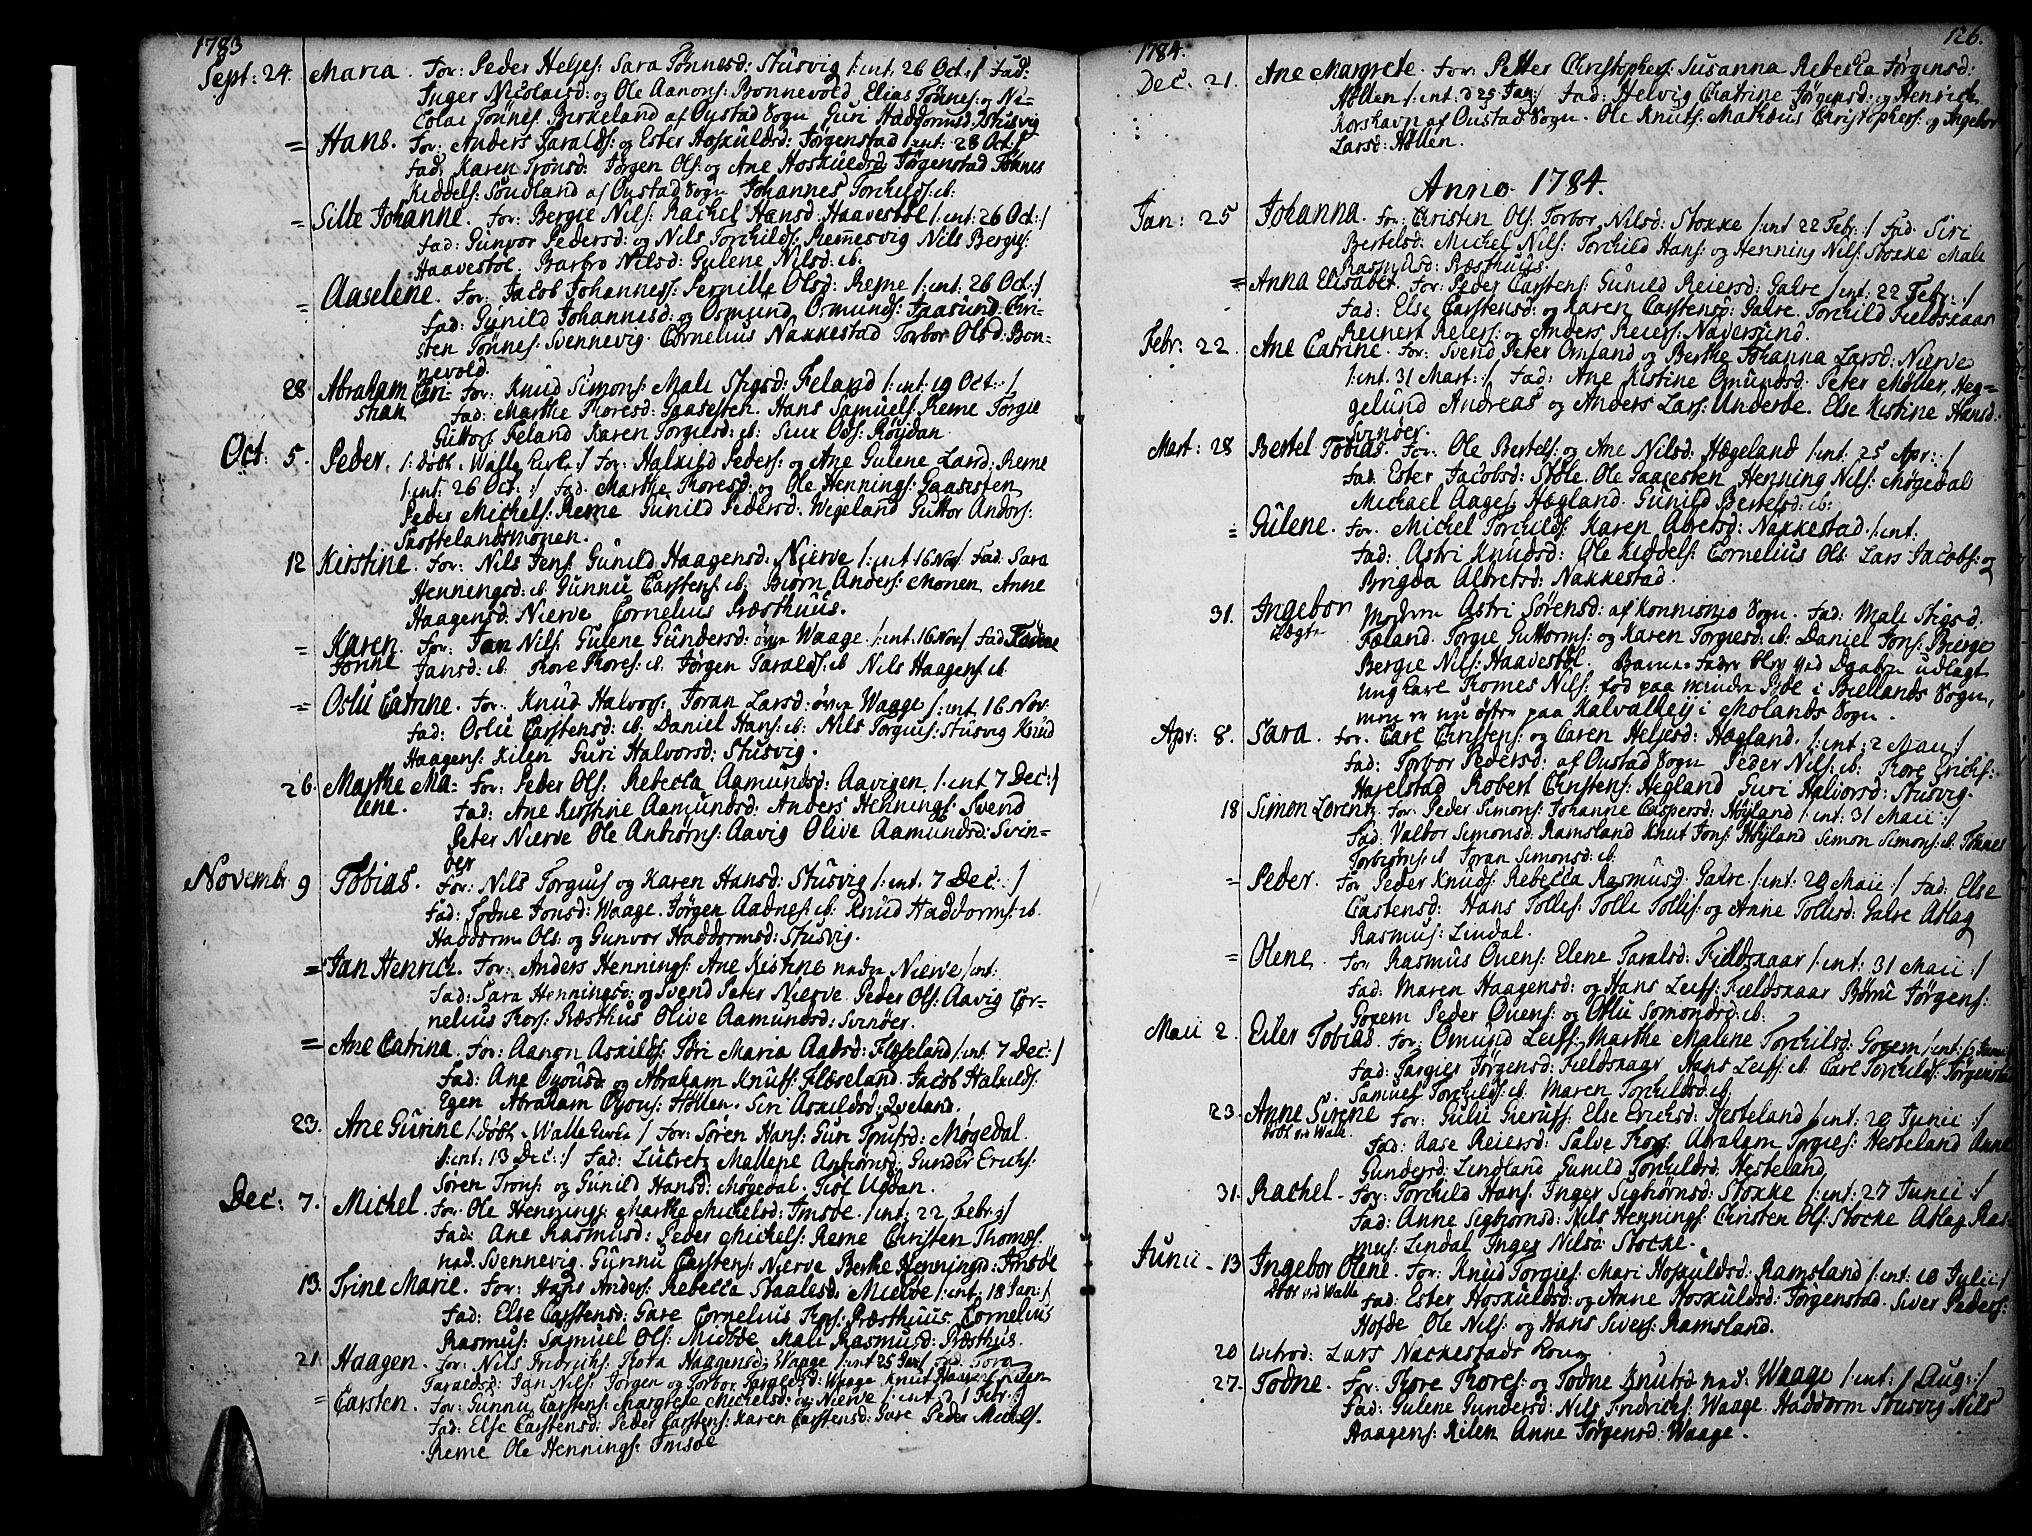 1783
Sept: 24. Maria. For: Peder Heljes: Sara Tønnesd: Stusvig /: int: 26 Oct:/ Fad:
Inger Nicolaisd: og Ole Aanons: Bonnevold, Elias Tønnes: og Ni-
colai Tønnes: Birkeland af Oustad Sogn Guri Haddormsd: Stusvig
= Hans. For: Anders Taralds: og Ester Hoskuldsd: Jørgenstad /: int: 28 Oct:/
Fad: Karen Tronsd: Jørgen Ols: og Ane Hoskuldsd: Jørgenstad Tønnes
Kiddels: Soudland af Oustad Sogn Johannes Torchilds: ib:
= Sille Johanne. For: Bergie Nils: Rachel Hansd: Haavestøl /: int: 26 Oct:/
Fad: Gunvor Pedersd: og Nils Torchilds: Remesvig Nils Bergies:
Haavestøl. Barbro Nilsd: Gulene Nilsd: ib.
= Aaselene. For: Jacob Johannes: Pernille Olsd: Reme /: int: 26 Oct:/
Fad: Gunild Johannesd: og Osmund Osmunds: Jaasund Chri-
sten Tønnes: Svennevig. Cornelius Nakkestad Torbor Olsd: Bon-
nevold.
28 Abraham Cri- For: Knud Simons: Mali Stigsd: Feland /: int: 19 Oct:/
stian Fad: Marthe Thoresd: Gaasesten. Hans Samuels: Reme Torgie
Guttors: Feland Karen Torgilsd: ib: Siur Ods: Røydan.
Oct: 5. Peder. /: døbt i Walle Kirke:/ For: Halkild Peders: og Ane Gulene Larsd: Reme
/: int: 26 Oct:/ Fad: Marthe Thoresd: og Ole Hennings: Gaasesten
Peder Michels: Reme Gunild Pedersd: Wigeland Guttor Andors:
Saaftelandsmonen.
12 Kirstine. For: Nils Jens: Gunild Haagensd: Nierve /: int 16 Nov:/ Fad: Sara
Henningsd: ib. Gunnu Carstens: ib. Biørn Anders: Monen Anne
Haagensd: Nierve Cornelius Præsthuus.
= Karen For: Jan Nils: Gulene Gundersd: øvre Waage /: int: 16 Nov:/ Fad: Todne
Tonne Jansd: ib. Thore Thores: ib. Jørgen Taralds: ib Nils Haagens: ib
= Oslu Catrine. For: Knud Halvors: Joran Larsd: øvre Waage /: int 16 Nov:
Fad: Oslu Carstensd: ib. Daniel Hans: ib. Nils Torguis: Stusvig Knud
Haagens: Kilen Guri Halvorsd: Stusvig.
26. Marthe Ma- For: Peder Ols: Rebecca Aamundsd: Aavigen /: int 7 Dec:/
lene. Fad: Ane Kirstine Aamundsd: Anders Hennings: Svend
Peter Nierve Ole Anbiørns: Aavig Olive Aamundsd: Svin-
øer
Novembr 9 Tobias. For: Nils Torguis og Karen Hansd: Stusvig /: int. 7 Dec:/
Fad: Todne Jonsd: Waage. Jørgen Aadnes: ib. Knud Haddorms: ib.
Haddorm Ols: og Gunvor Haddormsd: Stusvig.
= Jan Henrich. For: Anders Hennings: Ane Kistine nedre Nierve /: int:
Fad: Sara Henningsd: og Svend Peter Nierve. Peder Ols: Aavig Cor-
nelius Thors: Præsthus Olive Aamundsd: Svinøer.
= Ane Catrina. For: Aanon Askilds: Siri Maria Aabsd: Floseland /: int 7 Dec:/
Fad: Ane Oyousd: og Abraham Knuts: Fløseland. Jacob Halkilds:
Egen Abraham Oyous: Høllen. Siri Askildsd: Qveland.
23. Ane Gurine /: døbt i Walle Kirke / For: Søren Hans: Guri Tronsd: Møgedal.
/: int: 13 Dec:/ Fad: Lucretz Mallene Anbiørnsd: Gunder Erichs:
Søren Trons: og Gunild Hansd: Møgedal. Tiøl Uddan.
Dec: 7. Michel For: Ole Hennings: Marthe Michelsd: Imsøe. /: int: 22 Febr:/
Fad: Ane Rasmusd: Peder Michels: Reme Christen Thomes:
ned. Svennevig. Gunnu Carstens: Nierve Berthe Henningsd: Imsøe
13. Trine Marie. For: Hans Anders: Rebecca Staalesd: Midbøe /: int: 18 Jan:/
Fad: Else Carstensd: Gare Cornelius Thors: Præsthuus. Cornelius
Rasmus: Samuel Ols: Midbøe Mali Rasmusd: Præsthus.
21. Haagen. For: Nils Fridrichs: Thora Haagensd: Waage /: int 25 Jan:/ Fad: Tora
Taraldsd: Jan Nils: Jørgen og Torbor Taraldsd: Waage Knut Haagens: Kilen
= Carsten. For: Gunnu Carstens: Margrethe Michelsd: øvre Nierve /: int: d 1 Febr:/
Fad: Else Carstensd: Peder Carstens: Karen Carstensd: Gare Peder Michels.
Reme Ole Hennings: Imsøe
1784. 126.
Dec. 21. Ane Margrete. For: Petter Christophers: Susanna Rebecca Jørgensd:
Høllen /: int: d 25 Jan:/ Fad: Helvig Catrine Jørgensd: og Henrich
Korshavn af Oustad Sogn. Ole Knuts: Mathæus Christophers: og Ingebor
Larsd: Høllen.
Anno 1784.
Jan: 25 Johanna. For: Christen Ols: Torbor Nilsd: Stokke /: int 22 Febr:/ Fad: Siri
Bertelsd: Michel Nils: Torchild Hans: og Henning Nils: Stokke Mali
Rasmusd: Præsthuus.
= Anna Elisabet. For: Peder Carstens: Gunild Reiersd: Gahre /: int: 22 Febr:/
Fad: Else Carstensd: og Karen Carstensd: Gahre. Torchild Fieldskaar
Reinert Reiers: og Anders Reiers: Naversund.
Febr: 22. Ane Catrine. For: Svend Peter Omland og Berthe Johanna Larsd: Nierve
/: int. 31 Mart:/ Fad: Ane Kistine Omundsd: Peter Møller, Heg-
gelund Andreas og Anders Lars: Underøe. Else Kistine Hansd.
Svinøer.
Mart: 28 Bertel Tobias. For: Ole Bertels: og Ane Nilsd: Hægeland /: int: 25 Apr:/
Fad: Ester Jacobsd: Støle. Ole Gaasesten Henning Nils: Møgedal
Michael Aages: Hægland. Gunild Bertelsd: ib:
= Gulene. For: Michel Torchilds: Karen Albretsd: Nakkestad /: int:
Fad: Astri Knudsd: Ole Kiddels: Cornelius Ols: Lars Jacobs: og
Brigda Albretsd: Nakkestad.
31. Ingebor Moderen Astri Sørensd: af Konnismo Sogn. Fad: Mali Stigsd.
uægte Fæland. Torgie Guttorms: og Karen Torgiesd: ib. Daniel Jons: Bierge
Bergie Nils: Haavestøl. Barne-Fader blev ved Daaben udlagt
ung Carl Thomes Nils: fød paa mindre Syde i Biellands Sogn,
men er nu øster paa Kalvaldey i Molands Sogn.
Apr: 8. Sara. For. Carl Cirstens: og Caren Heljesd: Hægland. /: int: 2 Maii:/
Fad: Torbor Pedersd: af Oustad Sogn Peder Nils: ib. Thore Erichs:
Harelstad Robert Cirstens: Hegland Guri Halvorsd: Stusvig.
18 Simon Lorentz. For: Peder Simons: Johanne Caspersd: Høyland /: int: 31 Maii:/
Fad: Valbor Simonsd: Ramsland Knut Jons: Høyland Simon Simons: ib. Tønnes
Torbiørns: ib Joran Simonsd: ib.
= Peder. For Peder Knuds: Rebecca Rasmusd: Gahre /: int: 29 Maii:/ Fad: Else
Castensd: Hans Tolles: Tolle Tollis: og Anne Tollisd: Gahre Aslag
Rasmus: Lindal.
= Olene For Rasmus Ouens: Elene Taralsd: Fieldskaar /: int: 31 Maii:/
Fad: Maren Haagensd: og Hans Leifs: Fieldskaar Børru Jørgens:
Goxem Peder Ouens: og Oslu Somondsd: ib.
Maii 2. Eiler Tobias. For: Omund Leifs: Marthe Malene Torchilsd: Goxem /: int: 6 Junii
Fad: Targier Jørgensd: Fieldskaar Hans Leifs: ib. Carl Torchilds: Jørgenstad
Samuel Torchilds: ib. Maren Torchildsd: ib
23. Anne Sirene For: Gulu Gieruls: Else Erichsd: Hesteland /: int: 20 Junii:/
døbt ved Walle. Fad: Aase Reiersd: Salve Thors: Abraham Torgies: Hesteland Anne
Gundersd: Lindland Gunild Torchildsd: Hesteland
31. Rachel. For: Torchild Hans: Inger Sigbiørnsd: Stokke /: int: 27 Junii:/
Fad: Anne Sigbjørnsd: Nils Hennings: Christen Ols: Stocke Aslag Ras-
mus: Lindal Inger Nilsd: Stocke.
Junii - 13 Ingebor Olene. For: Knud Torgies: Mari Hoskuldsd: Ramsland /: int: 10 Julii:/
døbt ved Walle Fad: Ester Hoskuldsd: og Anne Hoskuldsd: Jørgenstad. Siver Peders:
Hofde Ole Nils: og Hans Sivers: Ramsland.
20 Introd: Lars Nackestads Kone
27. Todne. For: Thore Thores: og Todne Knutsd ned: Waage /: int: 1 Aug:/
Fad: Gulene Gundersd: Nils Fridrichs: Waage. Haddorm Stusvig Nils
Haagens: Kilen Anne Jørgensd: Waage.